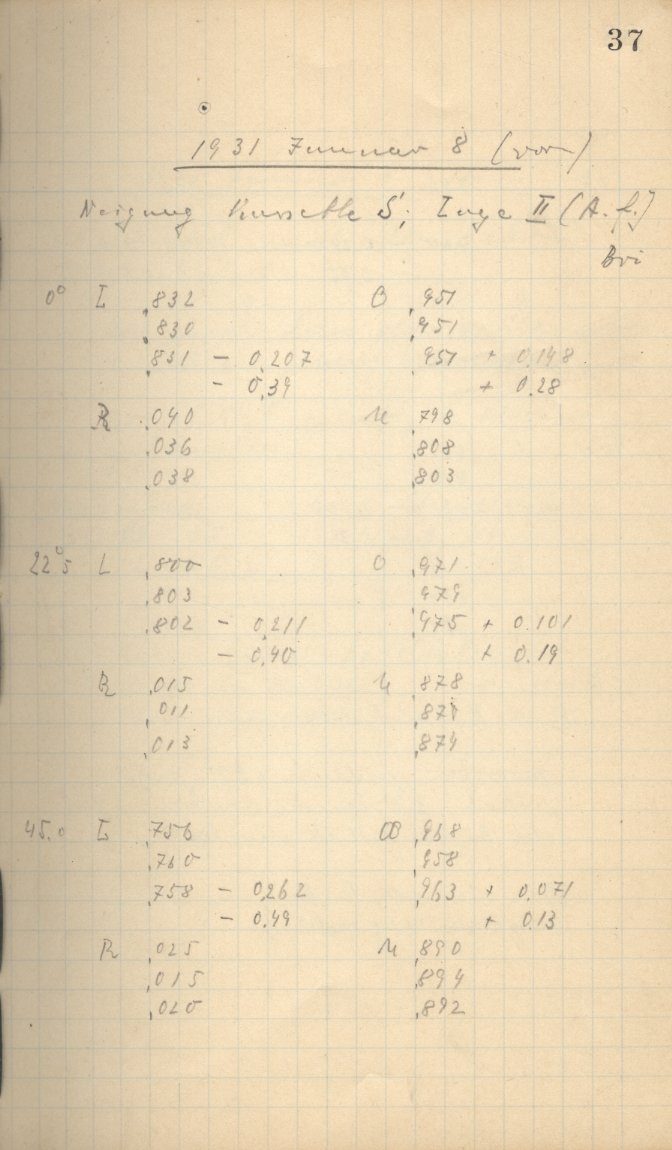 37
1931 Januar 8 (vor)
Neigung Kassette S; Lage II (A. f.)
Bri
0° L ,832 O ,951
,830 ,951
,831 - 0,207 ,951 + 0,148
- 0,39 + 0,28
R ,040 U ,798
,036 ,808
,038 ,803
22°5 L ,800 O ,971
,803 ,979
,802 - 0,211 ,975 + 0.101
- 0,40 + 0.19
R ,015 U ,878
,011
,013 ,874
45.0 L ,756 O ,968
,760 ,958
,758 - 0,262 ,963 + 0,071
- 0.49 + 0.13
R ,025 U ,890
,015 ,894
,020 ,892